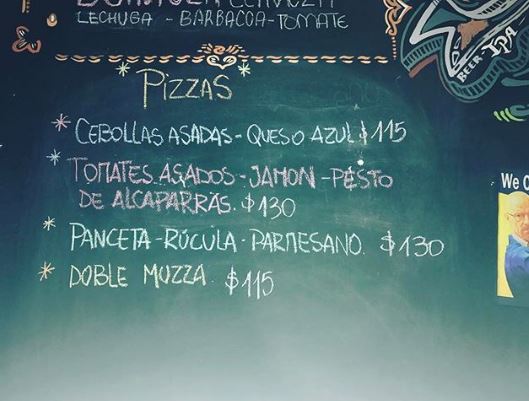 LECHUGA - BARBACOA - TOMATE
PIZZAS
* CEBOLLAS ASADAS - QUESO AZUL $115
* TOMATES ASADOS - JAMON - PESTO
DE ALCAPARRAS. $130
* PANCETA - RÚCULA - PARMESANO. $130
* DOBLE MUZZA. $115
BEER IPA
We